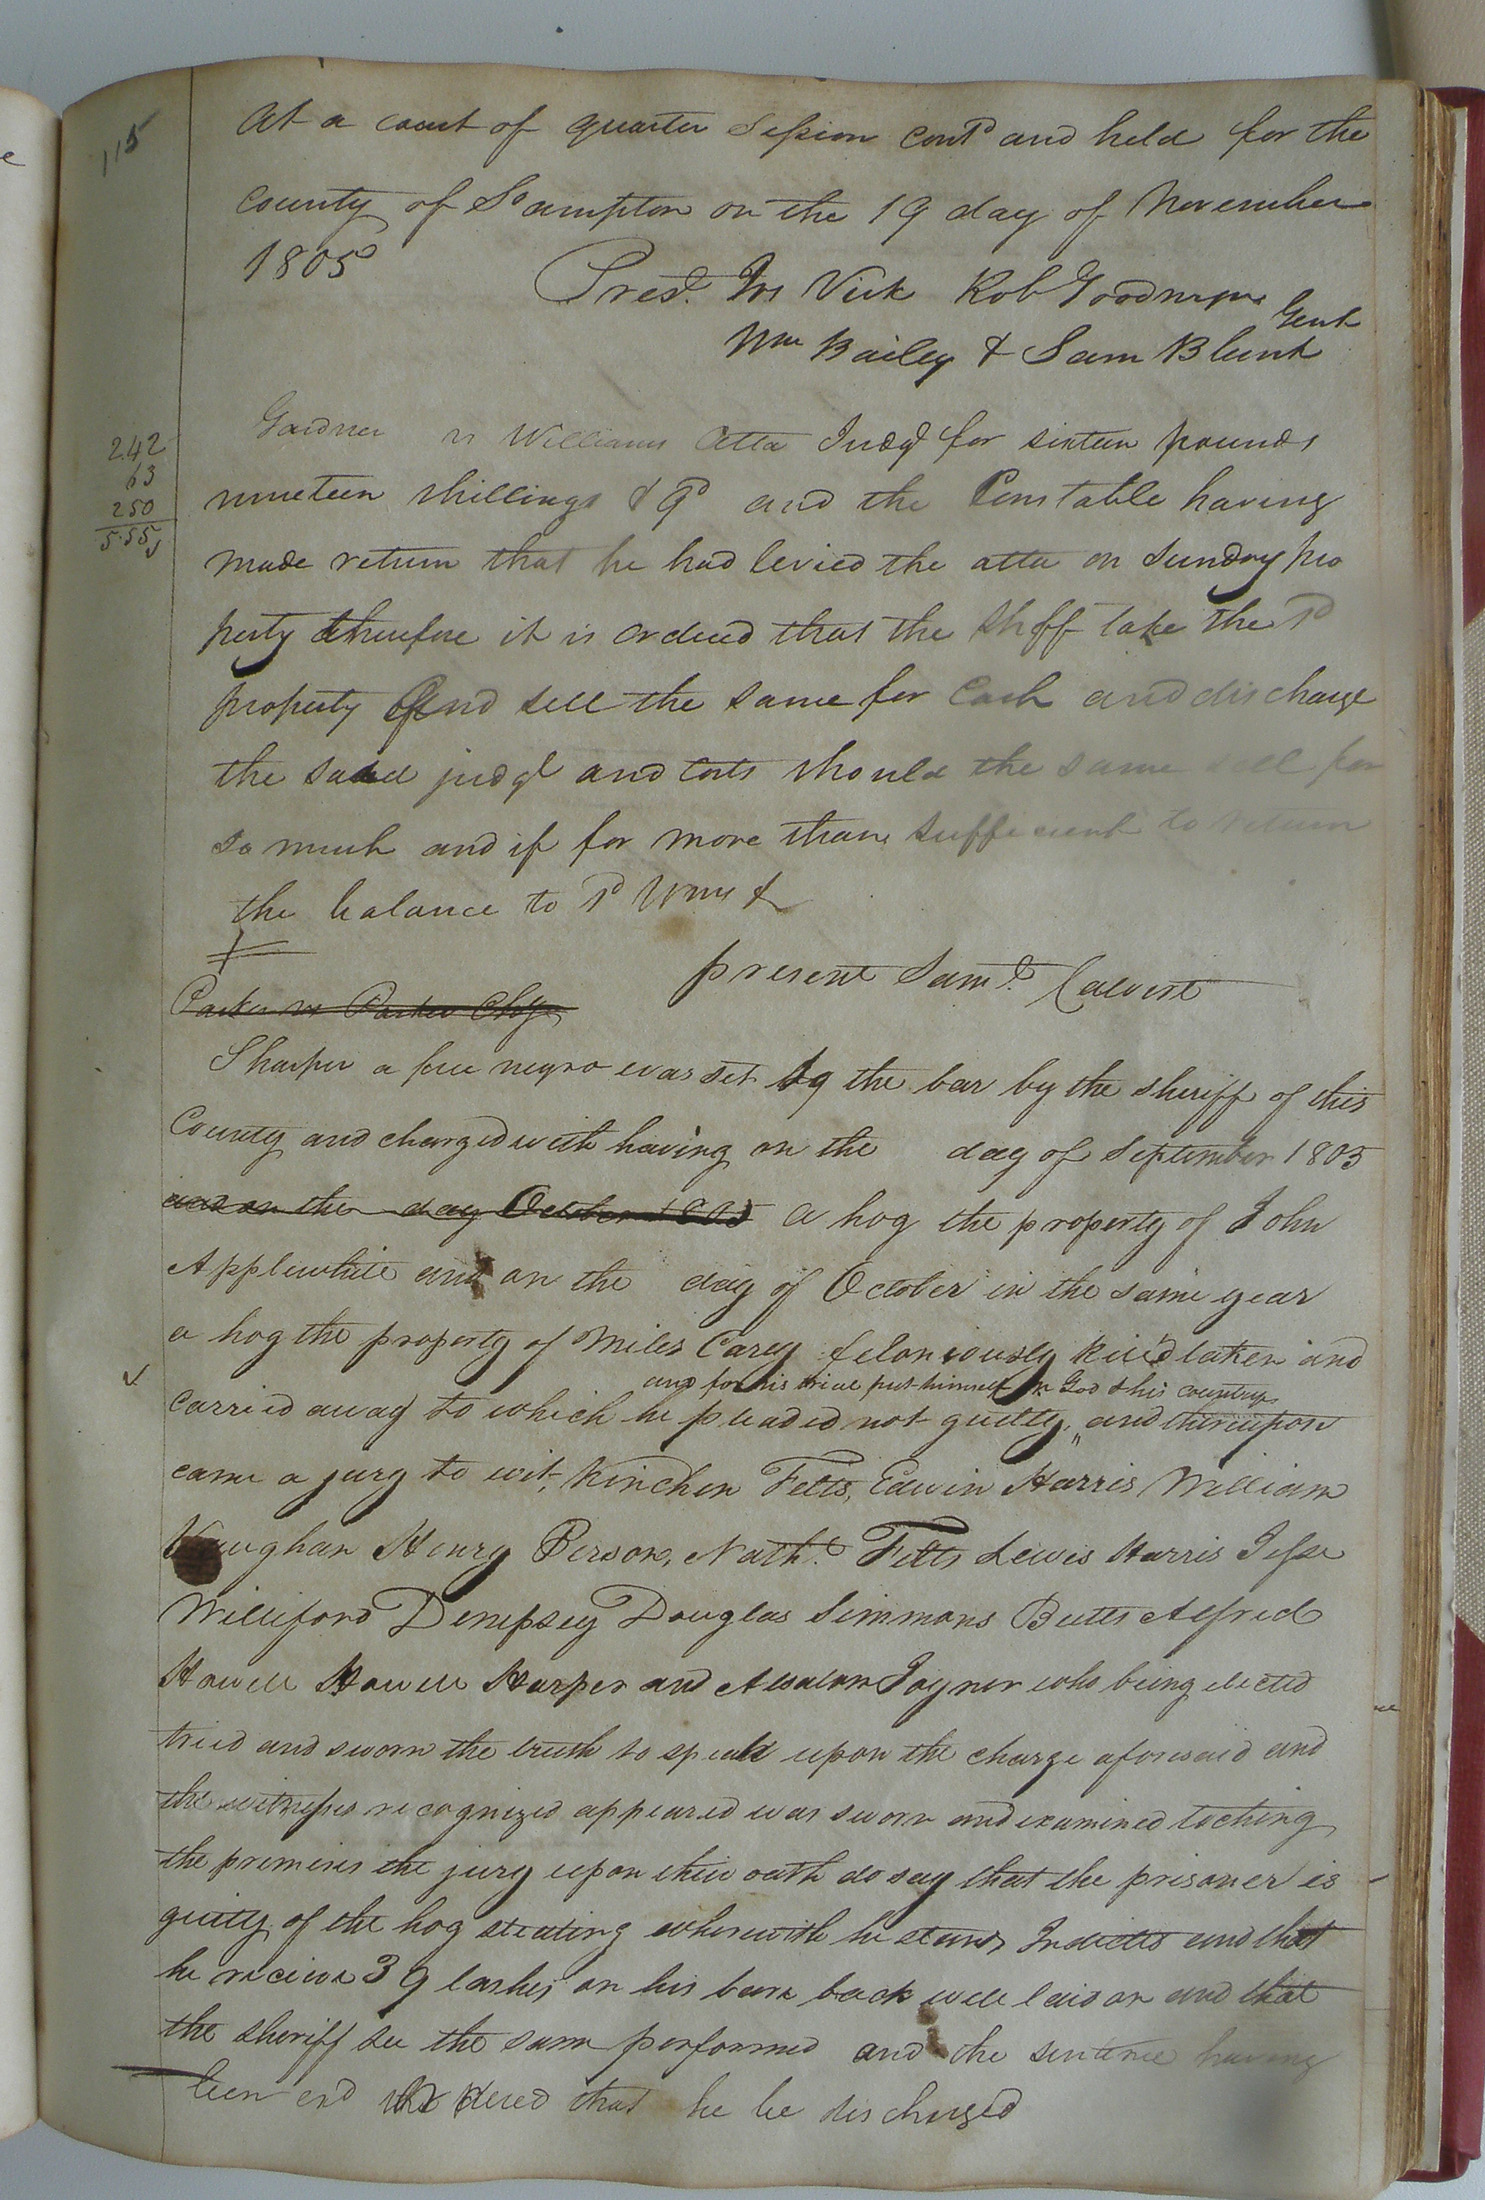 115
At a court of quarter Session cont'd and held for the
county of S'ampton on the 19 day of November
1805
Pres't Jos Vick Rob Goodwyn Gent
Wm Bailey & Sam Blunt
Gardner vs Williams Atta Judg't for sixteen pounds
242
63
250
5.55
nineteen shillings & 9d and the Constable having
made return that he had levied the atta on Sunday pro
perty therefore it is ordered that the Shff take the sd
property And sell the same for Cash and discharge
the said judgt and Costs should the same sell for
so much and if for more than sufficient to return
the balance to sd Wms &
present Saml. Calvert
Parker vs Parker Chy
Sharper a free negro was set to the bar by the sheriff of this
County and charged with having on the day of September 1805
and on the day October 1805 a hog the property of John
Applewhite and on the day of October in the same year
a hog the property of Miles Carey feloniously kill'd taken and
and for his trial put himself on God & his country
carried away to which he pleaded not guilty, and thereupon
came a jury to wit, Kinchen Felts, Edwin Harris William
Vaughan Henry Person, Nathl. Felts Lewis Harris Jesse
Williford Dempsey Douglas Simmons Butts Alfred
Howell Howell Harper and Absalom Joyner who being elected
tried and sworn the truth to speak upon the charge aforesaid and
the witnesses recognized appeared was sworn and examined toching
the premises the jury upon their oath do say that the prisoner is
guilty of the hog stealing wherewith he stands Indicted and that
he receive 39 lashes on his bare back well laid on and that
the sheriff see the same performed and the sentence having
been ordered that he be discharged